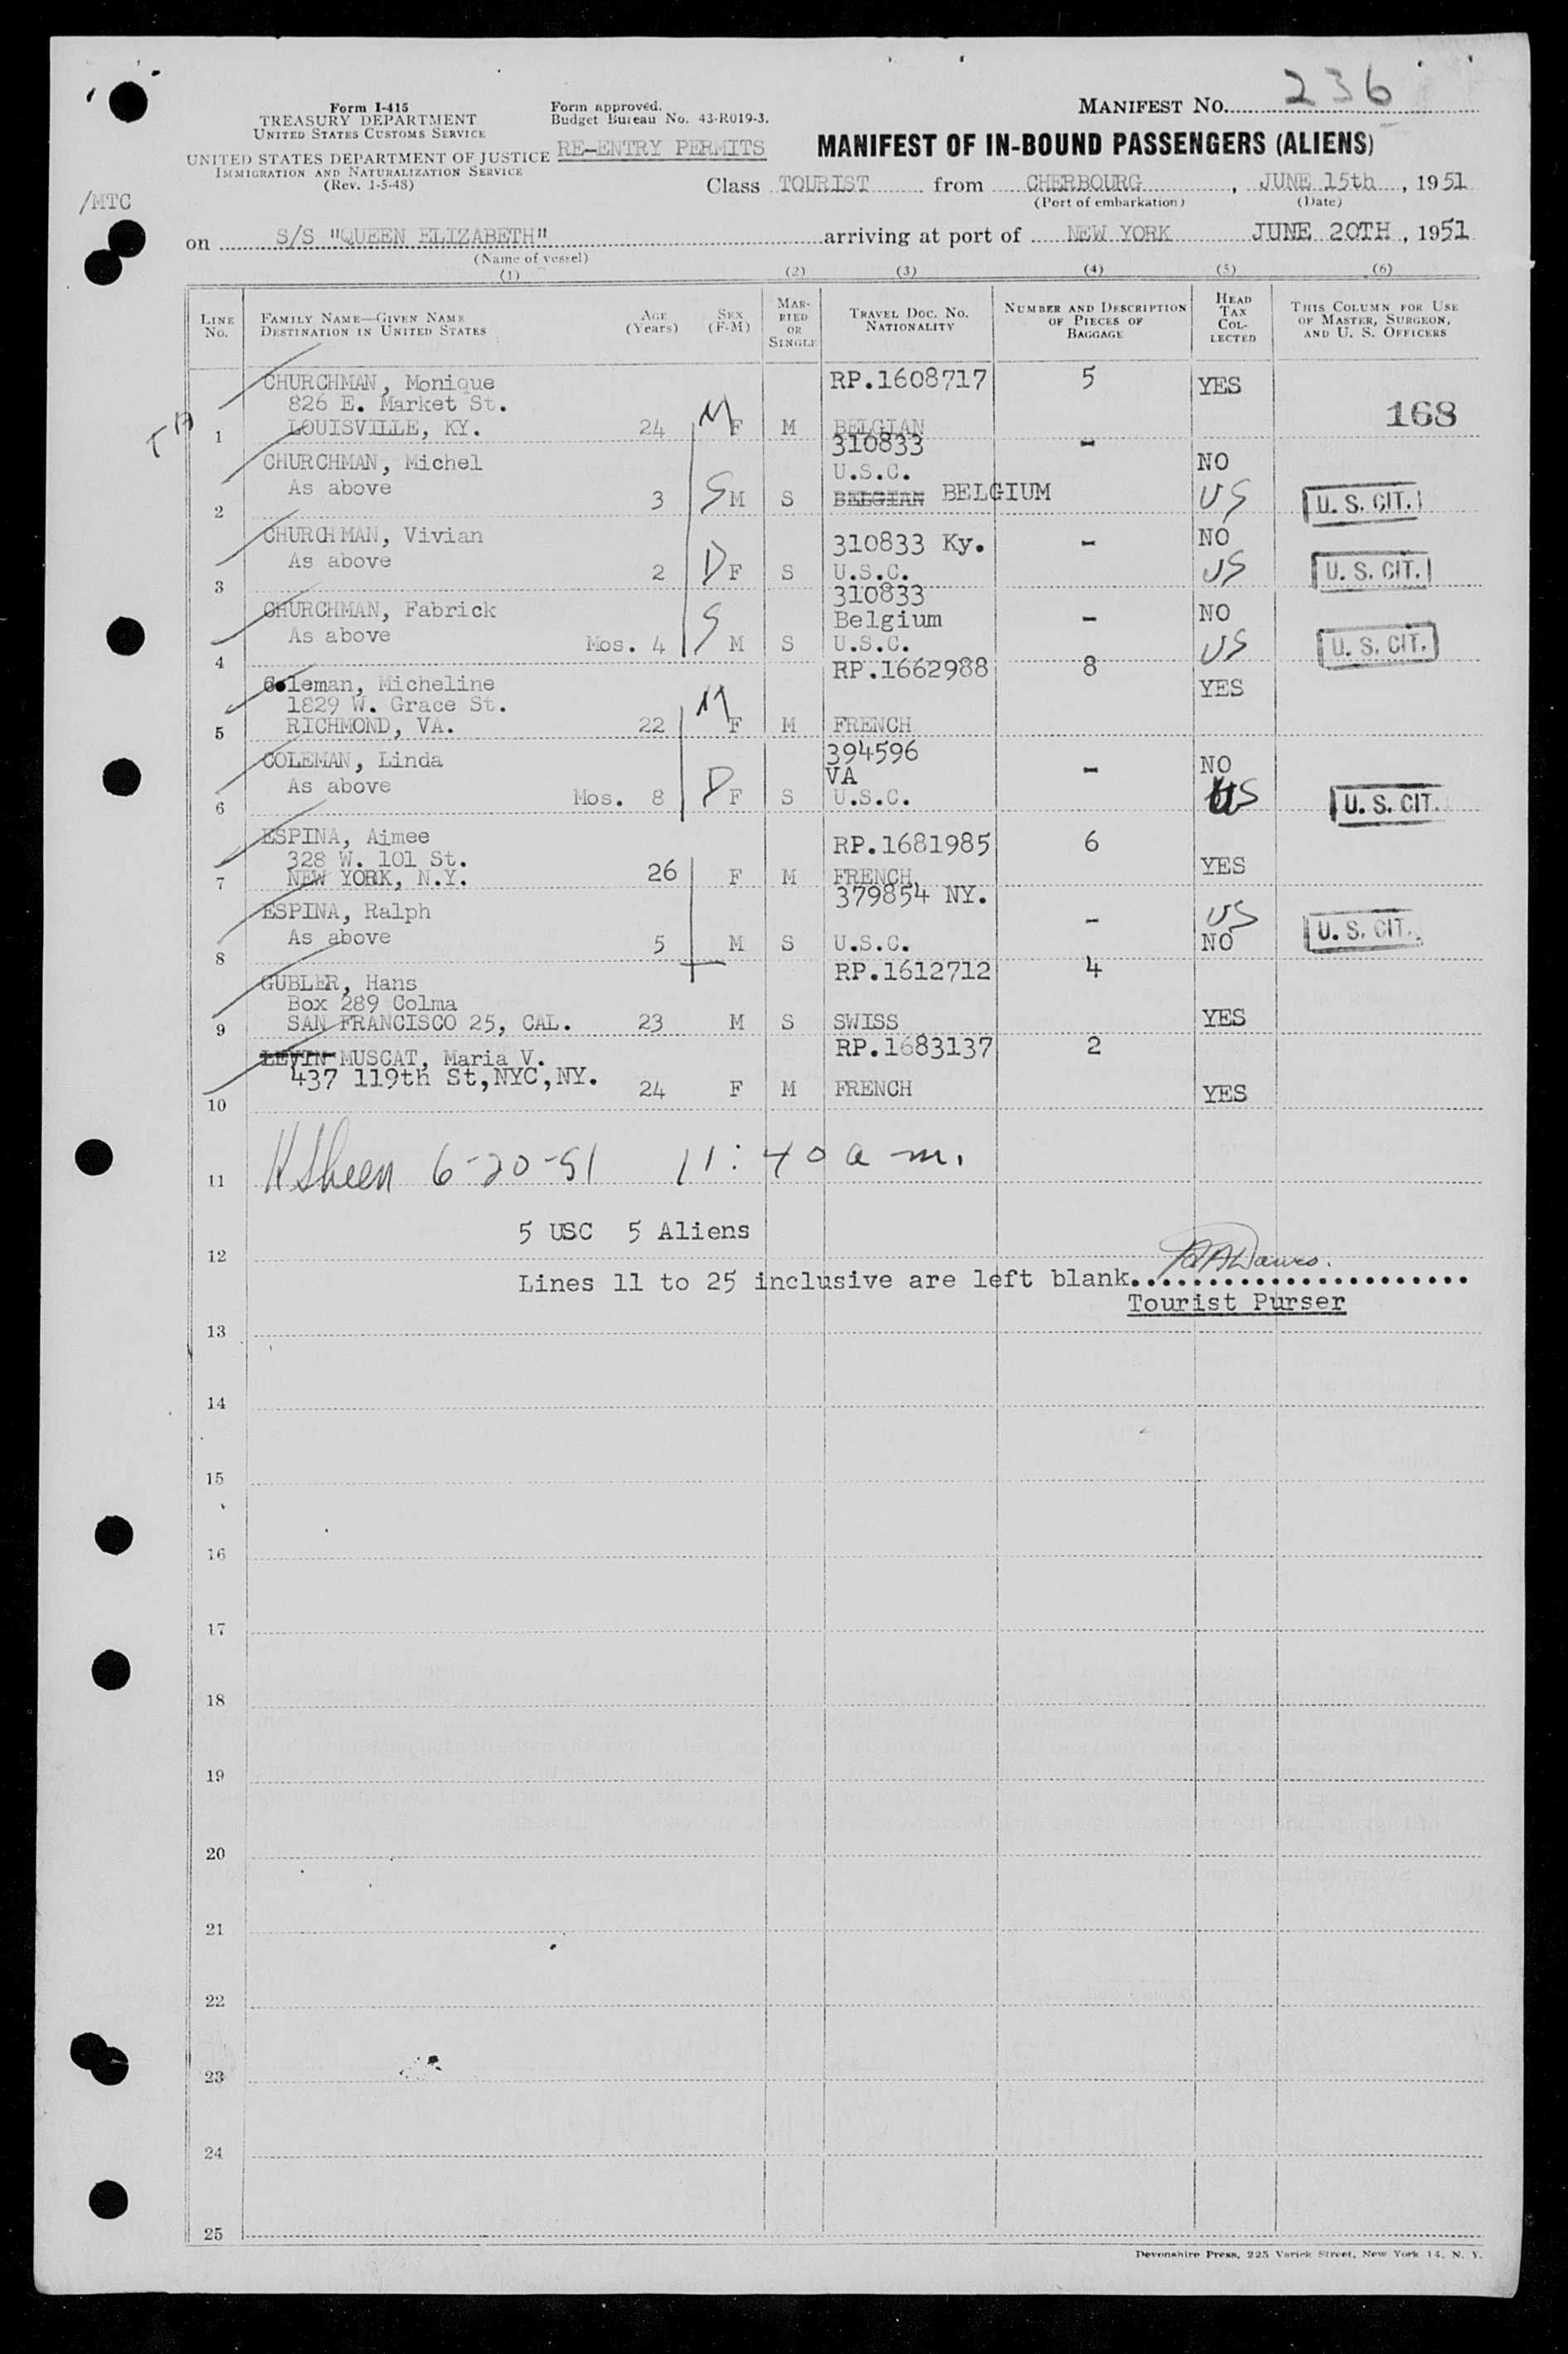 236
MANIFEST NO.
Form I-415
TREASURY DEPARTMENT
UNITED STATES CUSTOMS SERVICE
UNITED STATES DEPARTMENT OF JUSTICE
IMMIGRATION AND NATURALIZATION SERVICE
(Rev. 1-5-48)
Form approved.
Budget Bureau No. 43-R019-3.
RE-ENTRY PERMITS
MANIFEST OF IN-BOUND PASSENGERS (ALIENS)
/MTC
Class TOURIST from CHERBOURG, JUNE 15th, 1951
(Port of embarkation) (Date)
on S/S "QUEEN ELIZABETH" arriving at port of NEW YORK JUNE 20TH, 1951
(Name of vessel)
(1) (2) (3) (4) (5) (6)
LINE No. FAMILY NAME—GIVEN NAME DESTINATION IN UNITED STATES AGE (Years) SEX (F-M) MARRIED OR SINGLE TRAVEL DOC. NO. NATIONALITY NUMBER AND DESCRIPTION OF PIECES OF BAGGAGE HEAD TAX COLLECTED THIS COLUMN FOR USE OF MASTER, SURGEON, AND U. S. OFFICERS
CHURCHMAN, Monique RP.1608717 5 YES
826 E. Market St. 168
1 LOUISVILLE, KY. 24 M F M BELGIAN
CHURCHMAN, Michel 310833 - NO
As above U.S.C.
2 3 S M S BELGIAN BELGIUM US U. S. CIT.
CHURCHMAN, Vivian 310833 Ky. - NO
As above
3 2 D F S U.S.C. US U. S. CIT.
CHURCHMAN, Fabrick 310833 - NO
As above Belgium
4 Mos. 4 S M S U.S.C. US U. S. CIT.
Coleman, Micheline RP.1662988 8 YES
1829 W. Grace St.
5 RICHMOND, VA. 22 M F M FRENCH
COLEMAN, Linda 394596 - NO
As above VA
6 Mos. 8 D F S U.S.C. US U. S. CIT.
ESPINA, Aimee RP.1681985 6
328 W. 101 St. YES
7 NEW YORK, N.Y. 26 F M FRENCH
ESPINA, Ralph 379854 NY. - US
8 As above 5 M S U.S.C. NO U. S. CIT.
GUBLER, Hans RP.1612712 4
Box 289 Colma
9 SAN FRANCISCO 25, CAL. 23 M S SWISS YES
LEVIN MUSCAT, Maria V. RP.1683137 2
437 119th St,NYC,NY.
10 24 F M FRENCH YES
11 H Sheen 6-20-51 11:40 a-m.
5 USC 5 Aliens
12
Lines 11 to 25 inclusive are left blank.
Tourist Purser
13
14
15
16
17
18
19
20
21
22
23
24
25
Devonshire Press, 225 Varick Street, New York 14, N. Y.